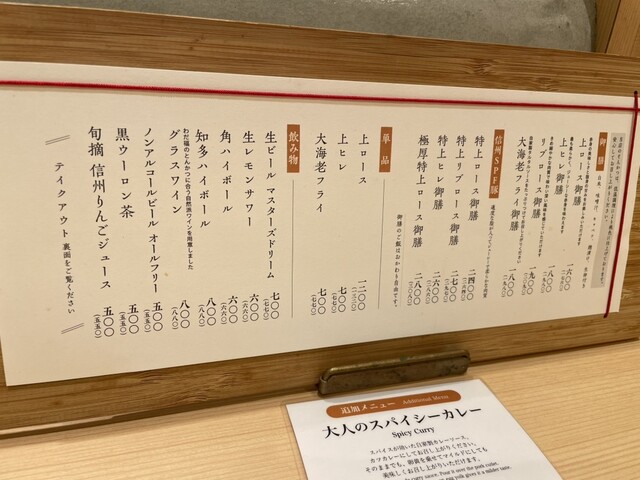 御膳
上ロース御膳 一六〇〇
上ヒレ御膳 一八〇〇
リブロース御膳 一九〇〇
大海老フライ御膳 一八〇〇
信州SPF豚
特上ロース御膳 二四〇〇
特上リブロース御膳 二七〇〇
特上ヒレ御膳 二六〇〇
極厚特上ロース御膳 二八〇〇
御膳のご飯はおかわり自由です。
単品
上ロース 一二〇〇
上ヒレ 七〇〇
(七七〇)
大海老フライ 七〇〇
(七七〇)
飲み物
生ビール マスターズドリーム 七〇〇
(七七〇)
生レモンサワー 六〇〇
(六六〇)
角ハイボール 六〇〇
(六六〇)
知多ハイボール 八〇〇
(八八〇)
わだ福のとんかつに合う自然派ワインを用意しました
グラスワイン 八〇〇
(八八〇)
ノンアルコールビール オールフリー 五〇〇
(五五〇)
黒ウーロン茶 五〇〇
(五五〇)
旬摘 信州りんごジュース 五〇〇
(五五〇)
テイクアウト 裏面をご覧ください
追加メニュー Additional Menu
大人のスパイシーカレー
Spicy Curry
スパイスが効いた自家製カレーソース。
カツカレーにしてお召し上がりください。
そのままでも、御黄を乗せてマイルドにしても
美味しくお召し上がりいただけます。
curry sauce. Pour it over the pork cutlet.
yolk gives it a milder taste.